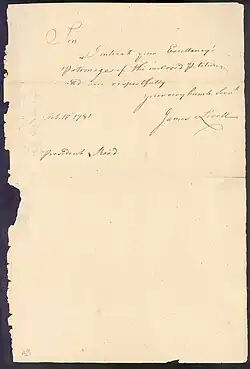 Sir
I intreat your Excellency's
Patronage of the inclosed Petition
and am respectfully
your very humb Servt
James Lovell
Feb. 18 1781
President Reed